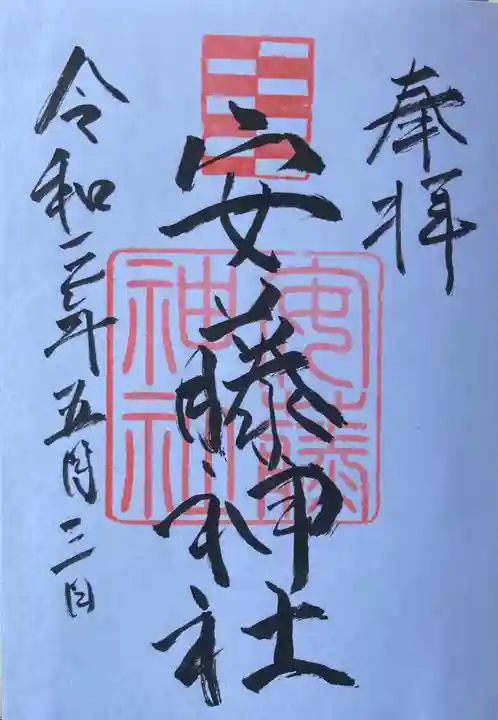 奉拝
安藤神社
令和二年五月三日
安藤
神社